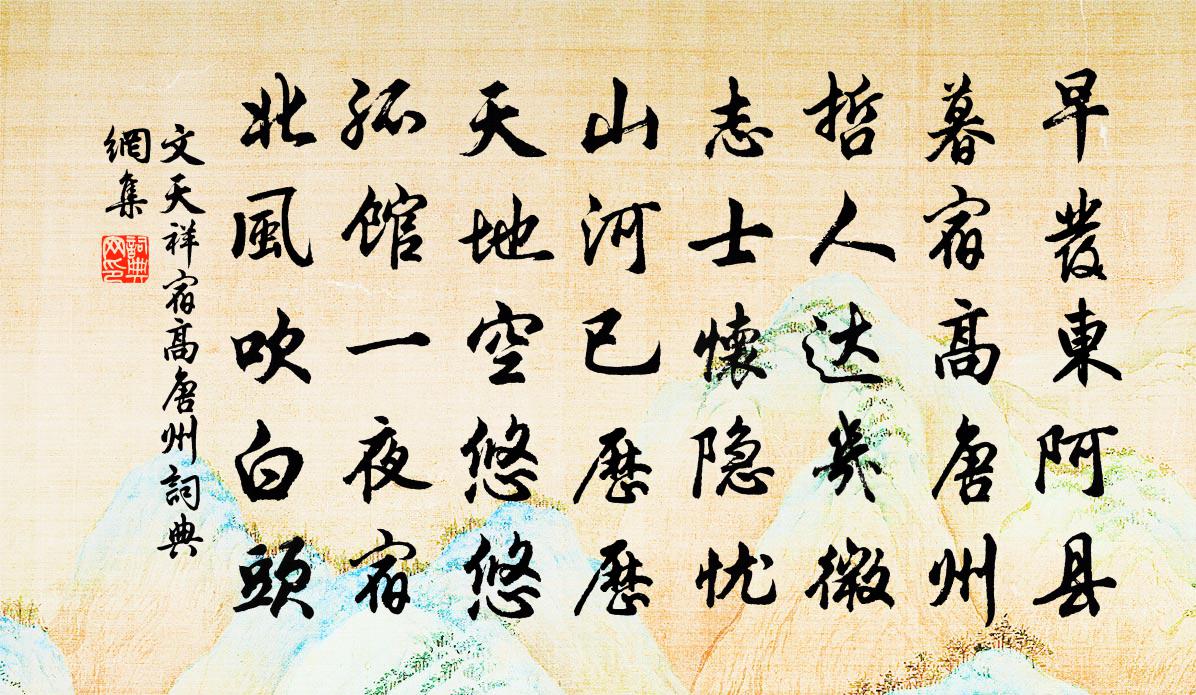 早發東阿县
暮宿高唐州
哲人达幾微
志士懷隐忧
山河已歷歷
天地空悠悠
孤馆一夜宿
北風吹白頭
文天祥宿高唐州詞典
網集
詞典
网印